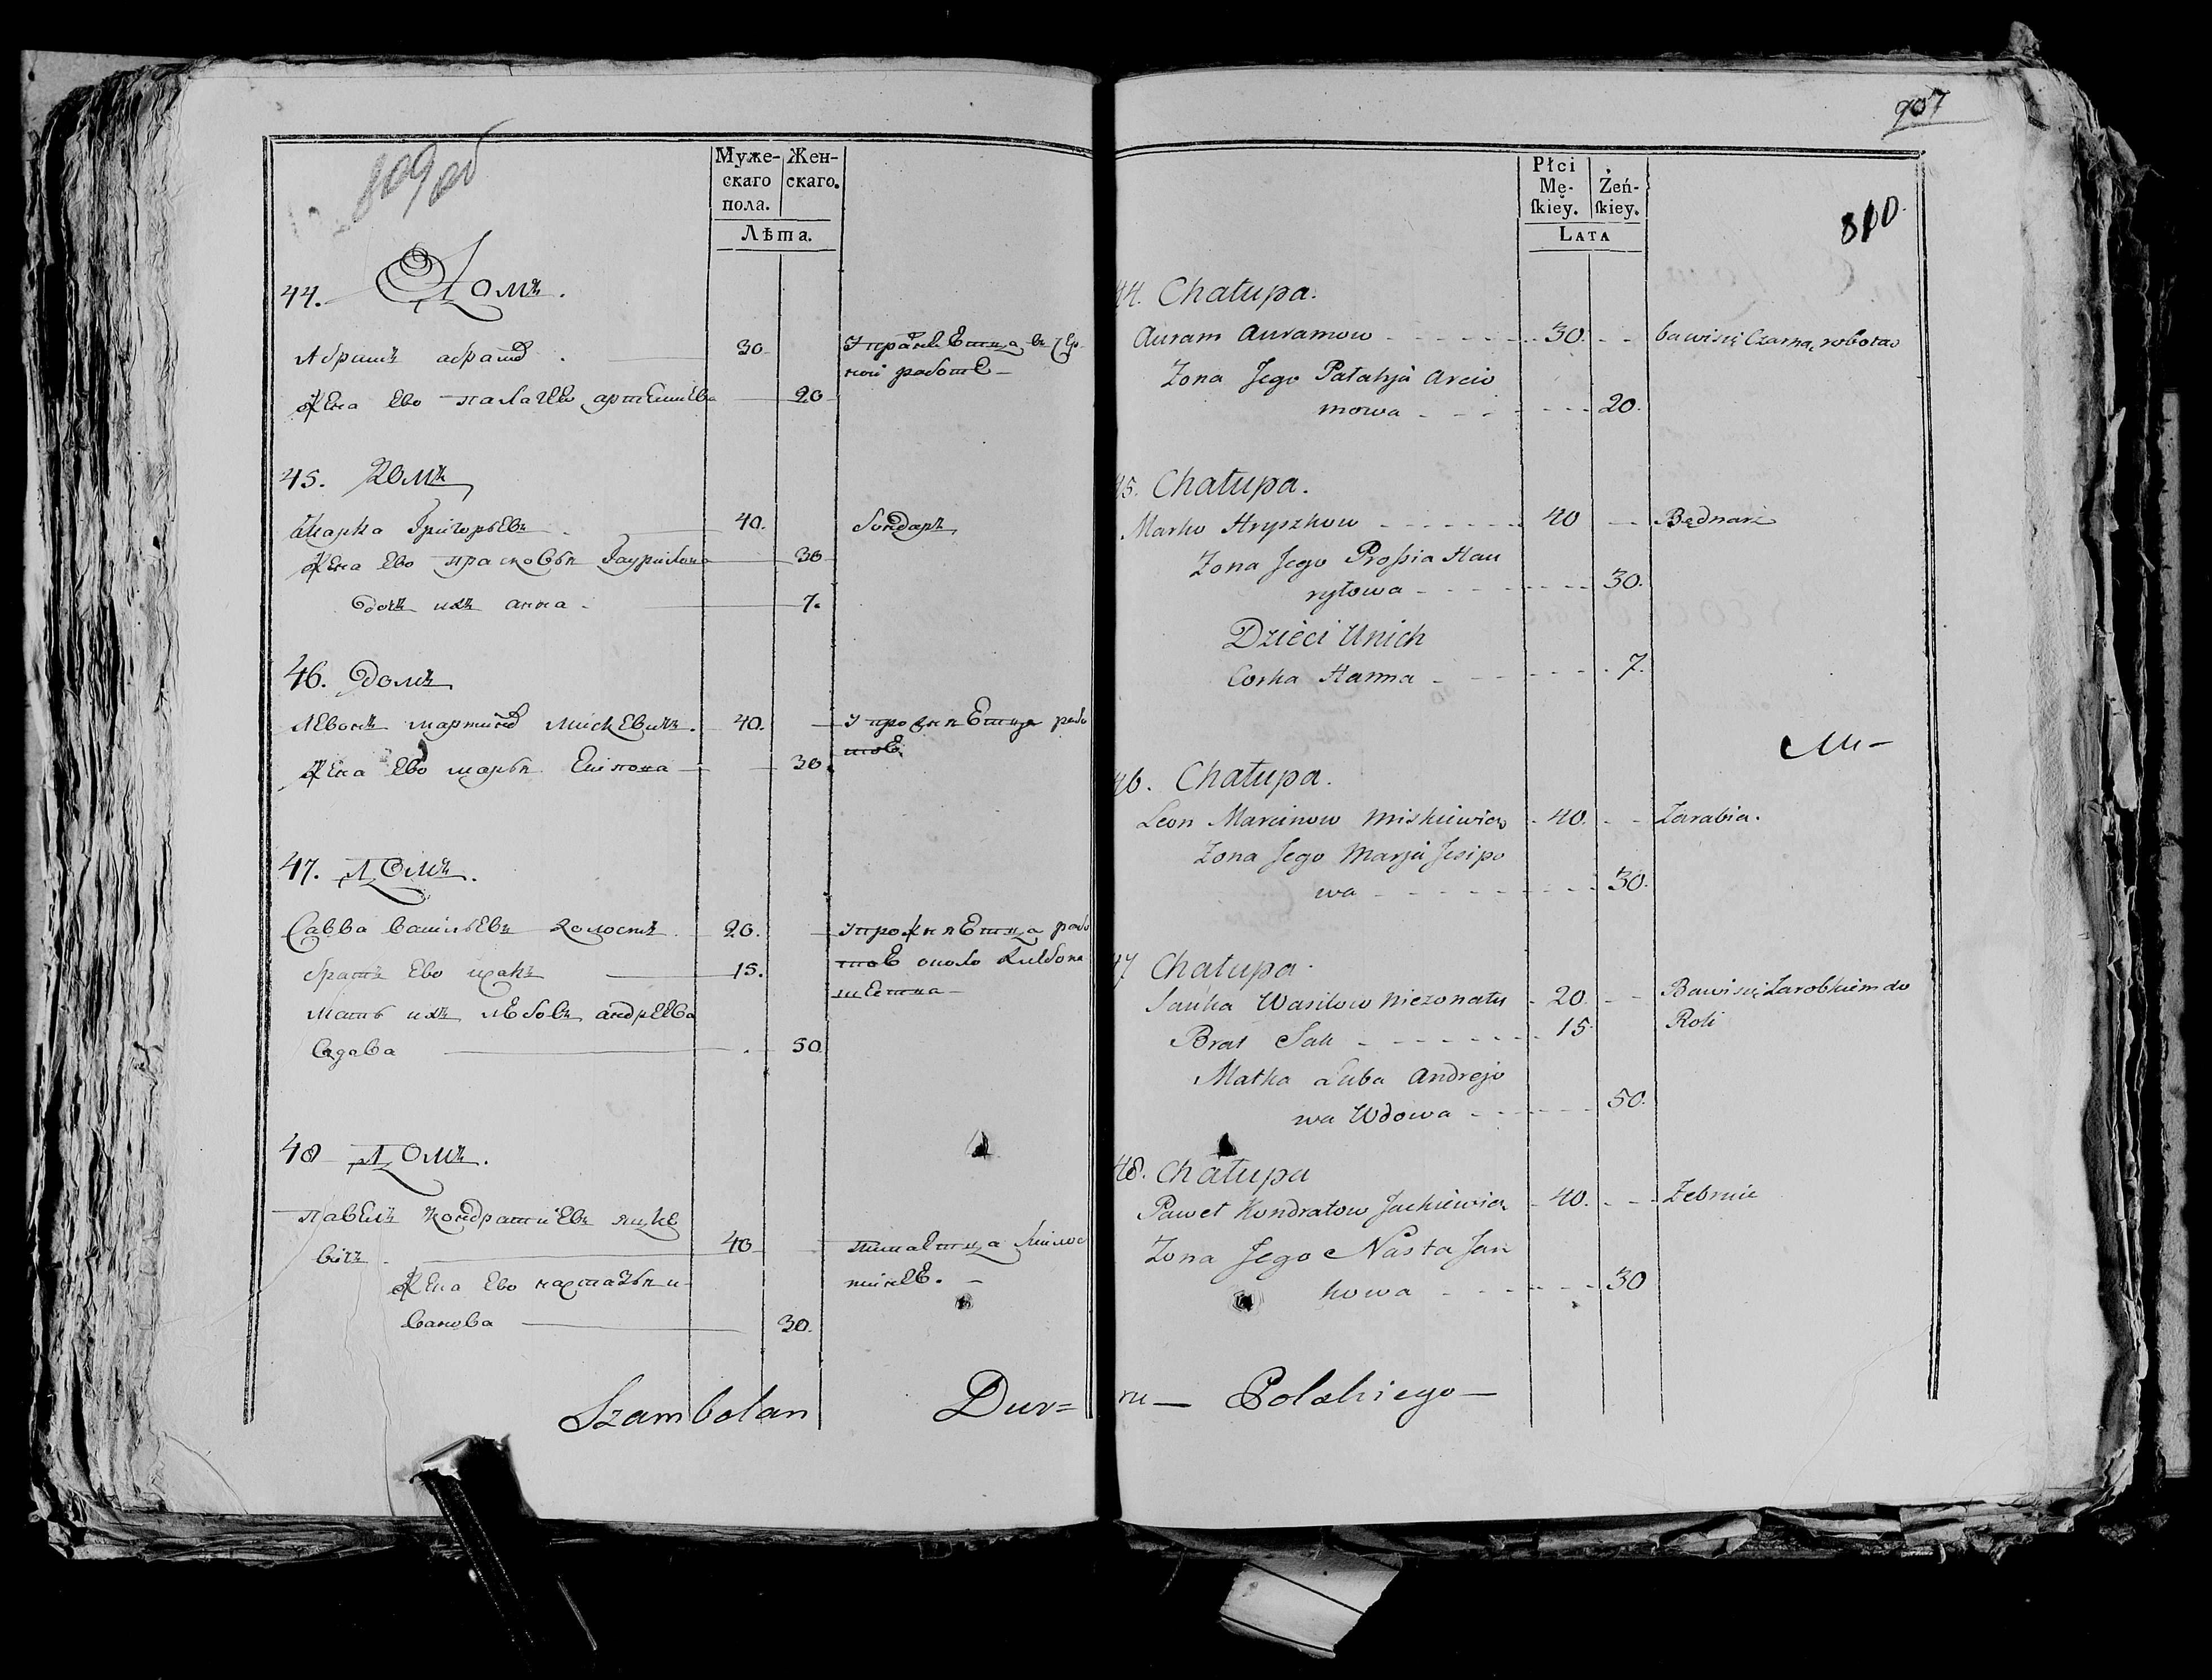 809 об
Муже-
скаго
пола.
Жен-
скаго.
Лѣта.
44. Домъ.
Абрамъ абрамо 30 Упражнѣетца въ чер
ной работѣ
Жена Ево палагея артемиева 20
45. Домъ
Марка Григорьевъ 40. бондаръ
Жена Ево прасковья Гаурилова 30
дочъ ихъ анна 7.
46. домъ
Левонъ мартино мискевичъ. 40. Упрожняѣтца рабо
тоѣ
Жена Ево марья Есипова 30
47. Домъ.
Савва васильевъ холостъ 20. Упрожняѣтца рабо
братъ Ево исакъ 15. тоѣ около хлѣбопа
шества
Мать ихъ любовъ андреева
вдова 50
48 Домъ.
павелъ кондратиевъ яцке
вичъ. 40 питаетца милос
тинеѣ.
Жена Ево настазья и
ванова 30.
Szambolan Dwo=
907
810.
Płci
Mę-
ſkiey.
Żeń-
ſkiey.
LATA
44. Chałupa.
Auram Auramow 30. bawisię Czarną robotą
Zona Jego Pałahja Arcio
mowa 20.
45. Chałupa.
Marko Hryszkow 40 Będnarz
Zona Jego Proſsia Hau
ryłowa 30.
Dzieci Unich
Corka Hanna 7.
Mi-
46. Chałupa.
Leon Marcinow Miskiewicz 40. Zarabia.
Zona Jego Marja Jesipo
wa 30.
47 Chałupa.
Sauka Wasilow niezonaty 20. Bawisię Zarobkiem do
Brat Sak 15 Roli
Matka Luba Andrejo
wa Wdowa 50.
48. Chałupa
Paweł Kondratow Jackiewicz 40. Zebrnie
Zona Jego Nasta Jan
kowa 30
ru Polskiego